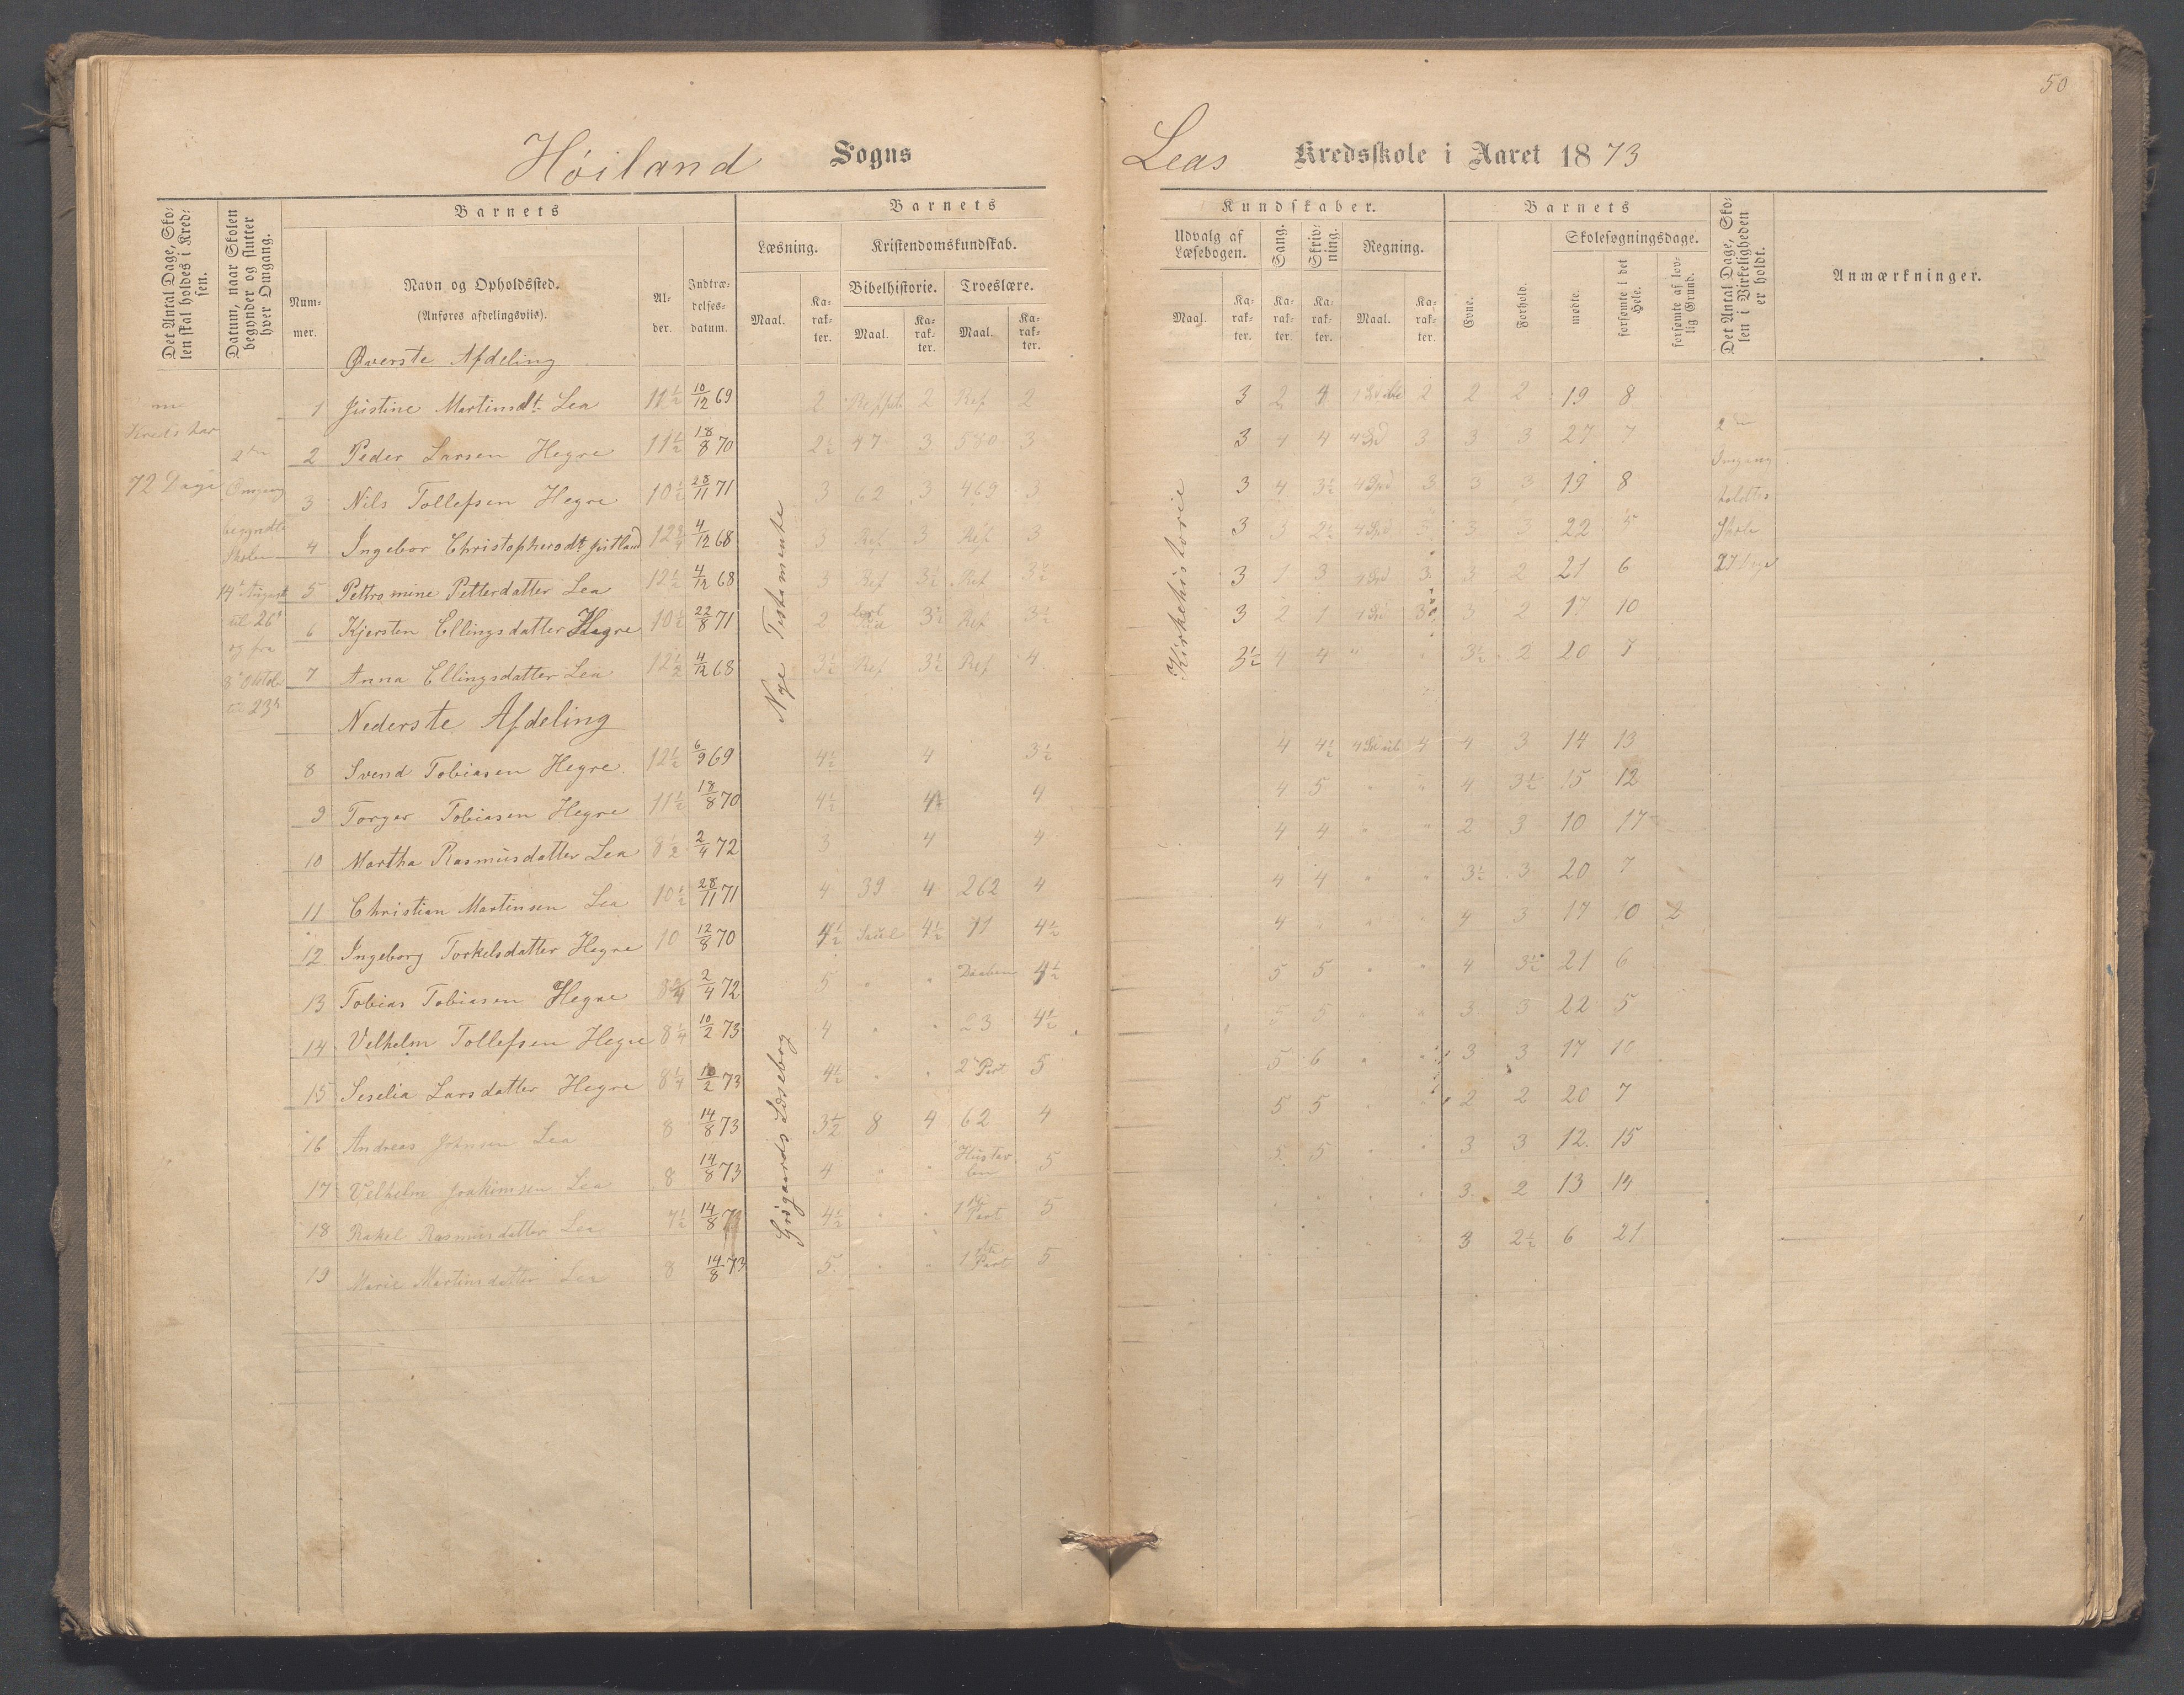 50
Høiland Sogns
Leas Kredsskole i Aaret 1873
Det Antal Dage, Skolen skal holdes i Kredsen.
Datum, naar Skolen begynder og slutter hver Omgang.
Barnets
Nummer.
Navn og Opholdssted.
(Anføres afdelingsviis).
Alder.
Indtrædelsesdatum.
Barnets
Læsning.
Kristendomskundskab.
Bibelhistorie.
Troeslære.
Maal.
Karakter.
Maal.
Karakter.
Maal.
Karakter.
Kundskaber.
Udvalg af Læsebogen.
Sang.
Skrivning.
Regning.
Maal.
Karakter.
Karakter.
Karakter.
Maal.
Karakter.
Barnets
Evne.
Forhold.
Skolesøgningsdage.
mødte.
forsømte i det Hele.
forsømte af lovlig Grund.
Det Antal Dage, Skolen i Virkeligheden er holdt.
Anmærkninger.
Kreds har
72 Dage
2den
Omgang
begyndte
Skolen
14de August
til 26de
og fra
8de Oktob.
til 23de
Nye Testamente
Kirkehistorie
2den
Omgang
holdtes
Skole
27 Dage
Øverste Afdeling
1 Justine Martinsdt. Lea 11½ 10/12 69 2 2 Ref 2 3 2 4 2 2 2 19 8
2 Peder Larsen Hegre 11½ 18/8 70 2½ 47 3 580 3 3 4 4 4 Spd 3 3 3 27 7
3 Nils Tollefsen Hegre 10½ 28/11 71 3 62 3 469 3 3 4 3½ 4 Spd 3 3 3 19 8
4 Ingebor Christophersdt. Jutland 12¾ 4/12 68 3 Ref 3 Ref 3 3 3 2½ 4 Spd 3 3 22 5
5 Pettromine Petterdatter Lea 12½ 4/12 68 3 Ref 3½ Ref 3½ 3 1 3 4 Spd 3 3 2 21 6
6 Kjersten Ellingsdatter Hegre 10½ 22/8 71 2 3½ Ref 3½ 3 2 1 4 Spd 3 3 2 17 10
7 Anna Ellingsdatter Lea 12½ 4/12 68 3½ Ref 3½ Ref 4 3½ 4 4 " " 3½ 2 20 7
Nederste Afdeling
8 Svend Tobiasen Hegre 12½ 6/9 69 4½ 4 3½ 4 4½ 4 4 3 14 13
9 Torger Tobiasen Hegre 11½ 18/8 70 4½ 4 4 4 5 " " 4 3½ 15 12
10 Martha Rasmusdatter Lea 8½ 2/4 72 3 4 4 4 4 " " 2 3 10 17
11 Christian Martinsen Lea 10½ 28/11 71 4 39 4 262 4 4 4 " " 3½ 3 20 7
12 Ingeborg Torkelsdatter Hegre 10 12/8 70 4½ Saul 4½ 71 4½ 4 " " " 4 3 17 10 2
13 Tobias Tobiasen Hegre 8¾ 2/4 72 5 " " Daaben 4½ 5 5 " " 4 3½ 21 6
14 Velhelm Tollefsen Hegre 8¼ 10/2 73 4 " " 23 4½ 5 5 " " 3 3 22 5
15 Seselia Larsdatter Hegre 8¼ 10/2 73 4½ " " 2den Part 5 5 6 " " 3 3 17 10
16 Andreas Johnsen Lea 8 14/8 73 3½ 8 4 62 4 5 5 " " 2 2 20 7
17 Velhelm Joakimsen Lea 8 14/8 73 4 " " Hustavlen 5 5 5 " " 3 3 12 15
18 Rakel Rasmusdatter Lea 7½ 14/8 4½ " " 1ste Part 5 " " " " 3 2 13 14
19 Marie Martinsdatter Lea 8 14/8 73 5 " " 1ste Part 5 " " " " 3 2½ 6 21